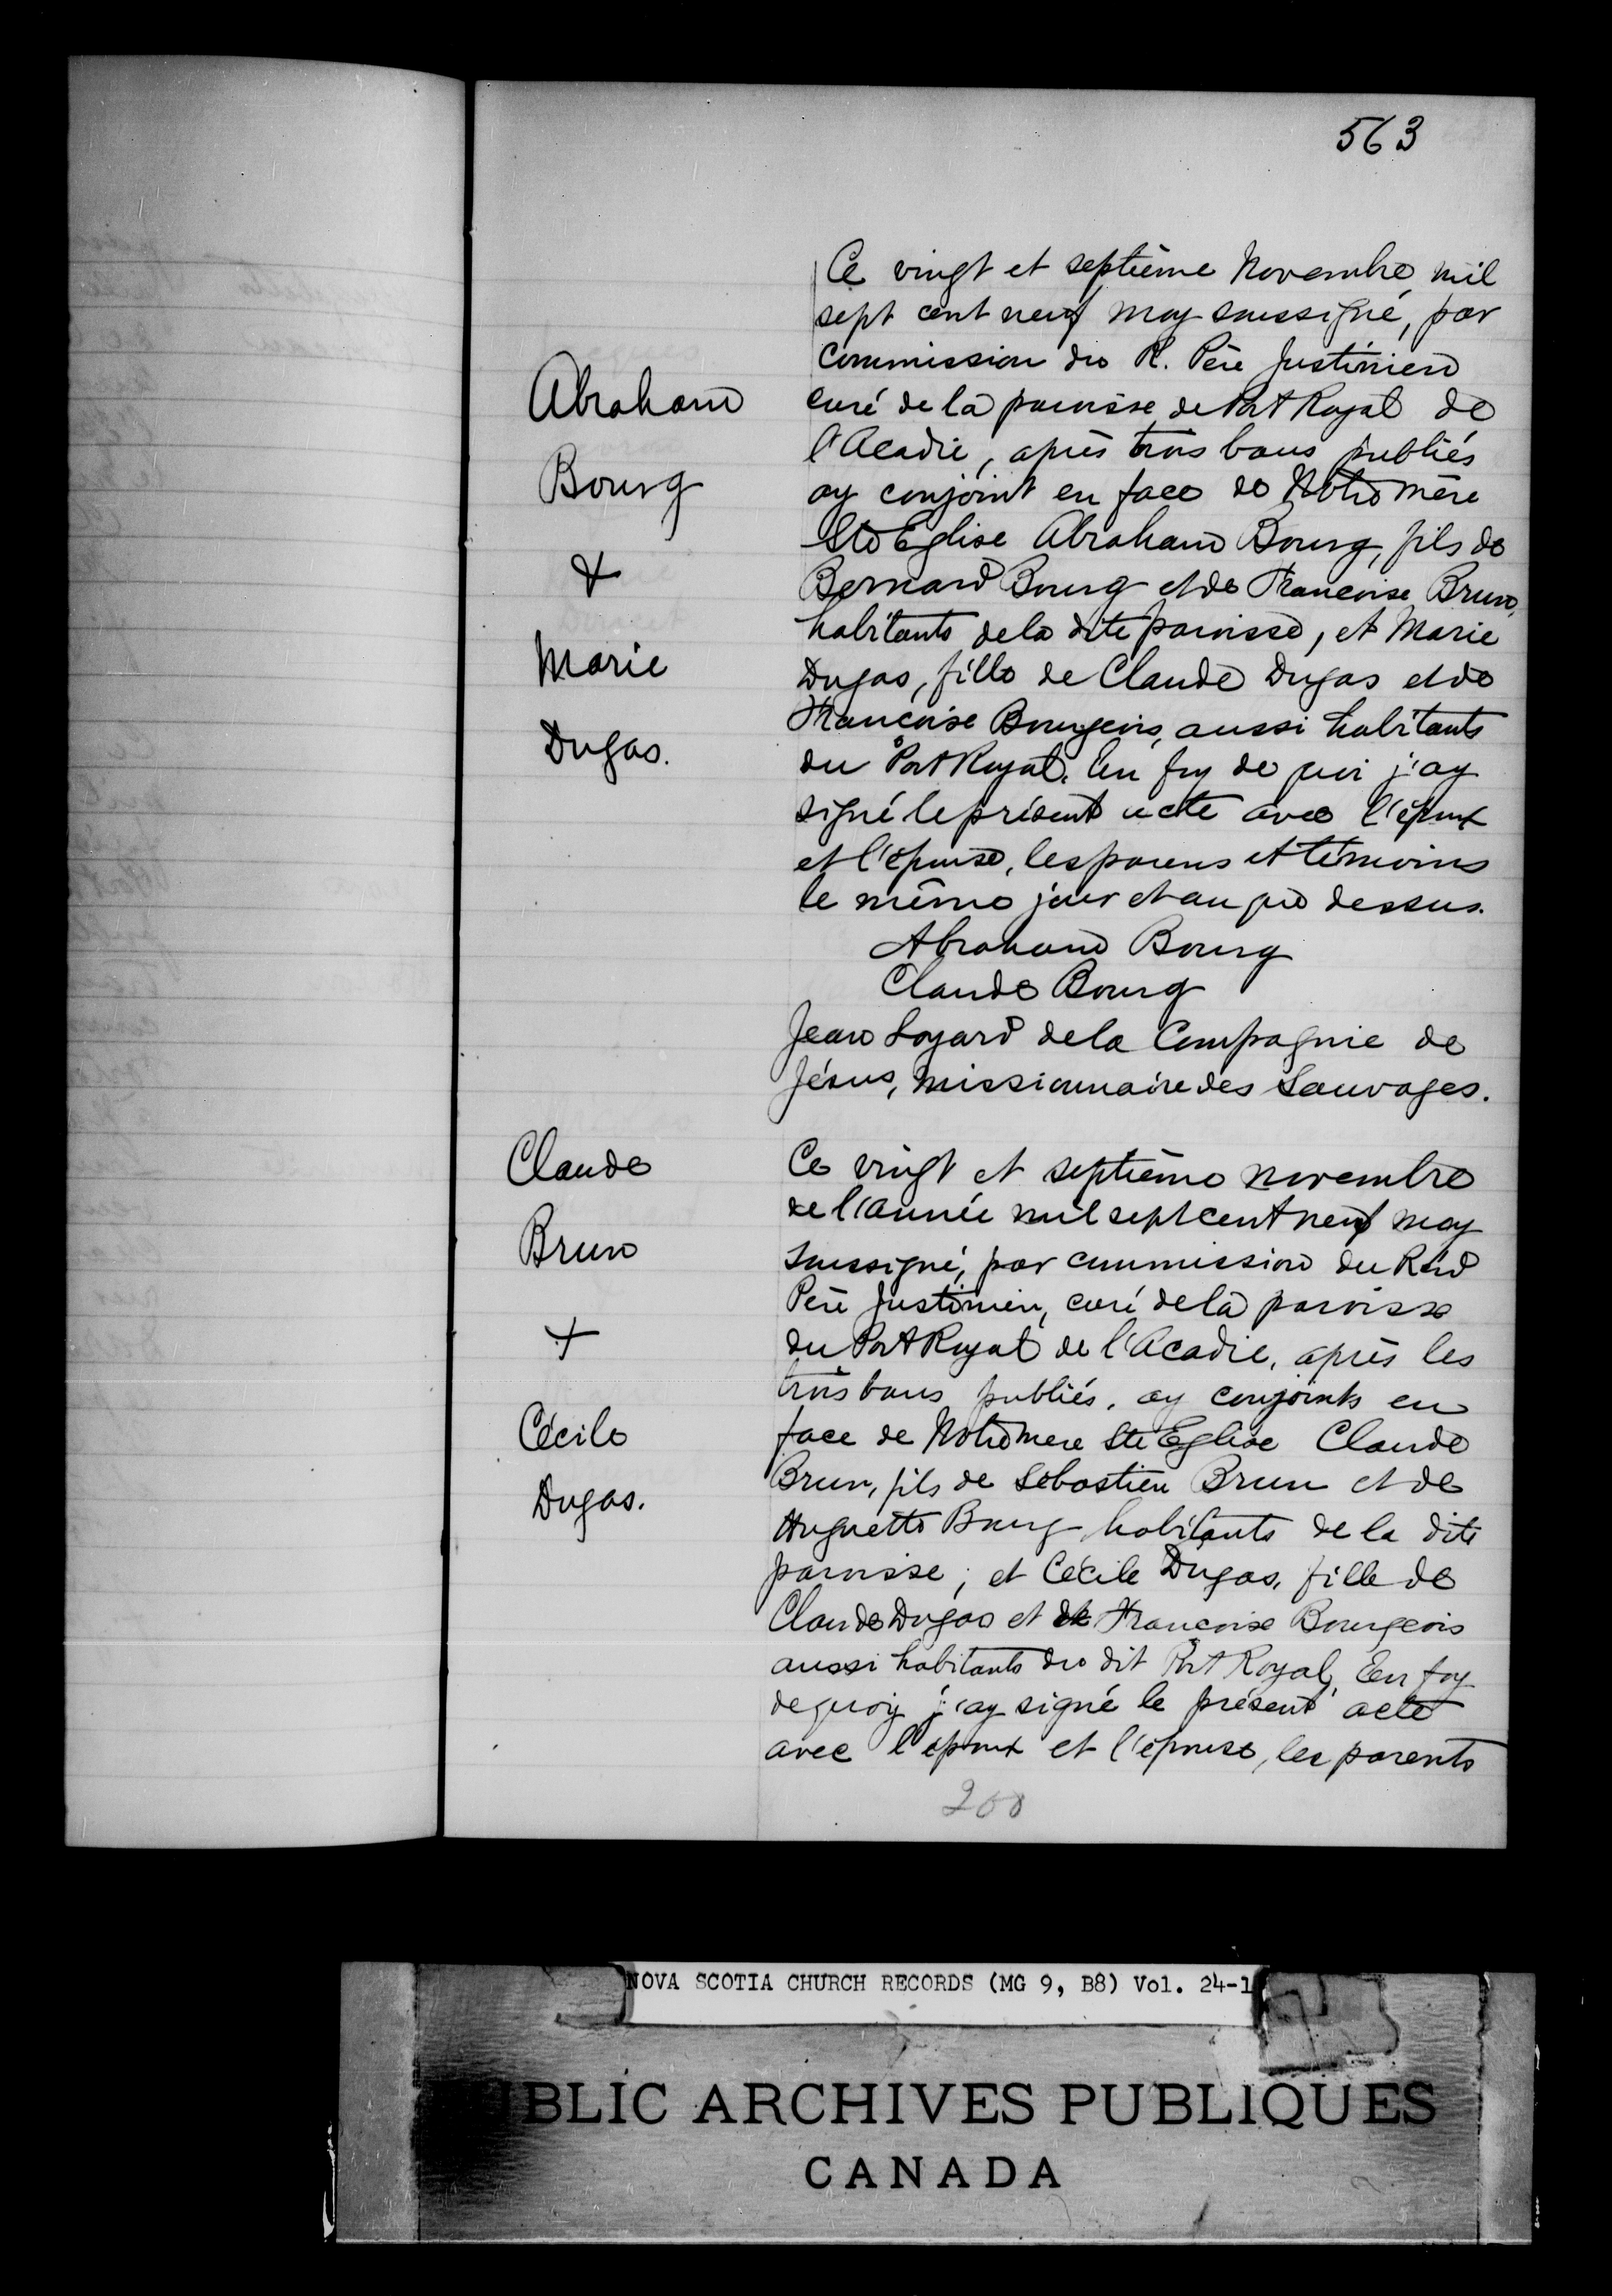 563
Ce vingt et septième Novembre, mil
sept cent neuf moy soussigné, par
commission du R. Père Justinien
curé de la paroisse de Port Royal de
l'Acadie, après trois bans publiés
ay conjoint en face de Notre mère
Ste Eglise Abraham Bourg, fils de
Bernard Bourg et de Francoise Brun,
habitants de la dite paroisse, et Marie
Dugas, fille de Claude Dugas et de
Francoise Bourgeois, aussi habitants
du Port Royal. En foy de quoi j'ay
signé le présent acte avec l'époux
et l'épouse, les parens et témoins
le même jour et an que dessus.
Abraham Bourg
Claude Bourg
Jean Loyard de la Compagnie de
Jésus, missionnaire des Sauvages.
Abraham
Bourg
&
Marie
Dugas.
Ce vingt et septième novembre
de l'année mil sept cent neuf moy
soussigné, par commission du Rnd
Père Justinien, curé de la paroisse
du Port Royal de l'Acadie, après les
trois bans publiés, ay conjoints en
face de Notre mere Ste Eglise Claude
Brun, fils de Sébastien Brun et de
Huguette Bourg habitants de la dite
paroisse; et Cécile Dugas, fille de
Claude Dugas et de Francoise Bourgeois
aussi habitants du dit Port Royal, En foy
de quoy j'ay signé le présent acte
avec l'epoux et l'epouse, les parents
Claude
Brun
+
Cécile
Dugas.
200
NOVA SCOTIA CHURCH RECORDS (MG 9, B8) Vol. 24-1
BLIC ARCHIVES PUBLIQUES
CANADA